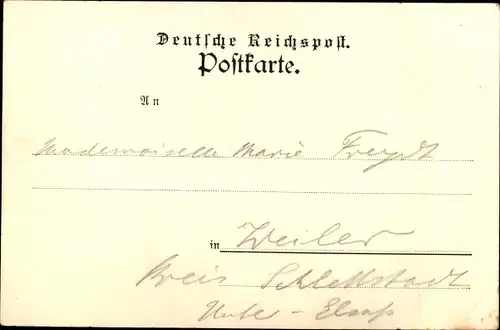 Deutsche Reichspost.
Postkarte.
An
Mademoiselle Marie Freydt
in Weiler
Kreis Schlettstadt
Unte - Elsass